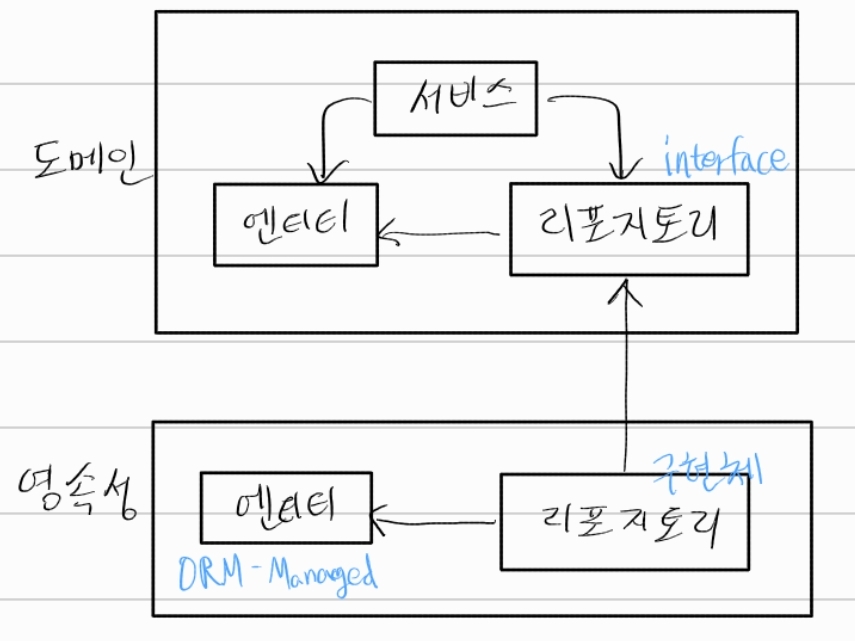 서비스
도메인
interface
엔터티
리포지토리
영속성
구현체
엔터티
리포지토리
ORM-Managed